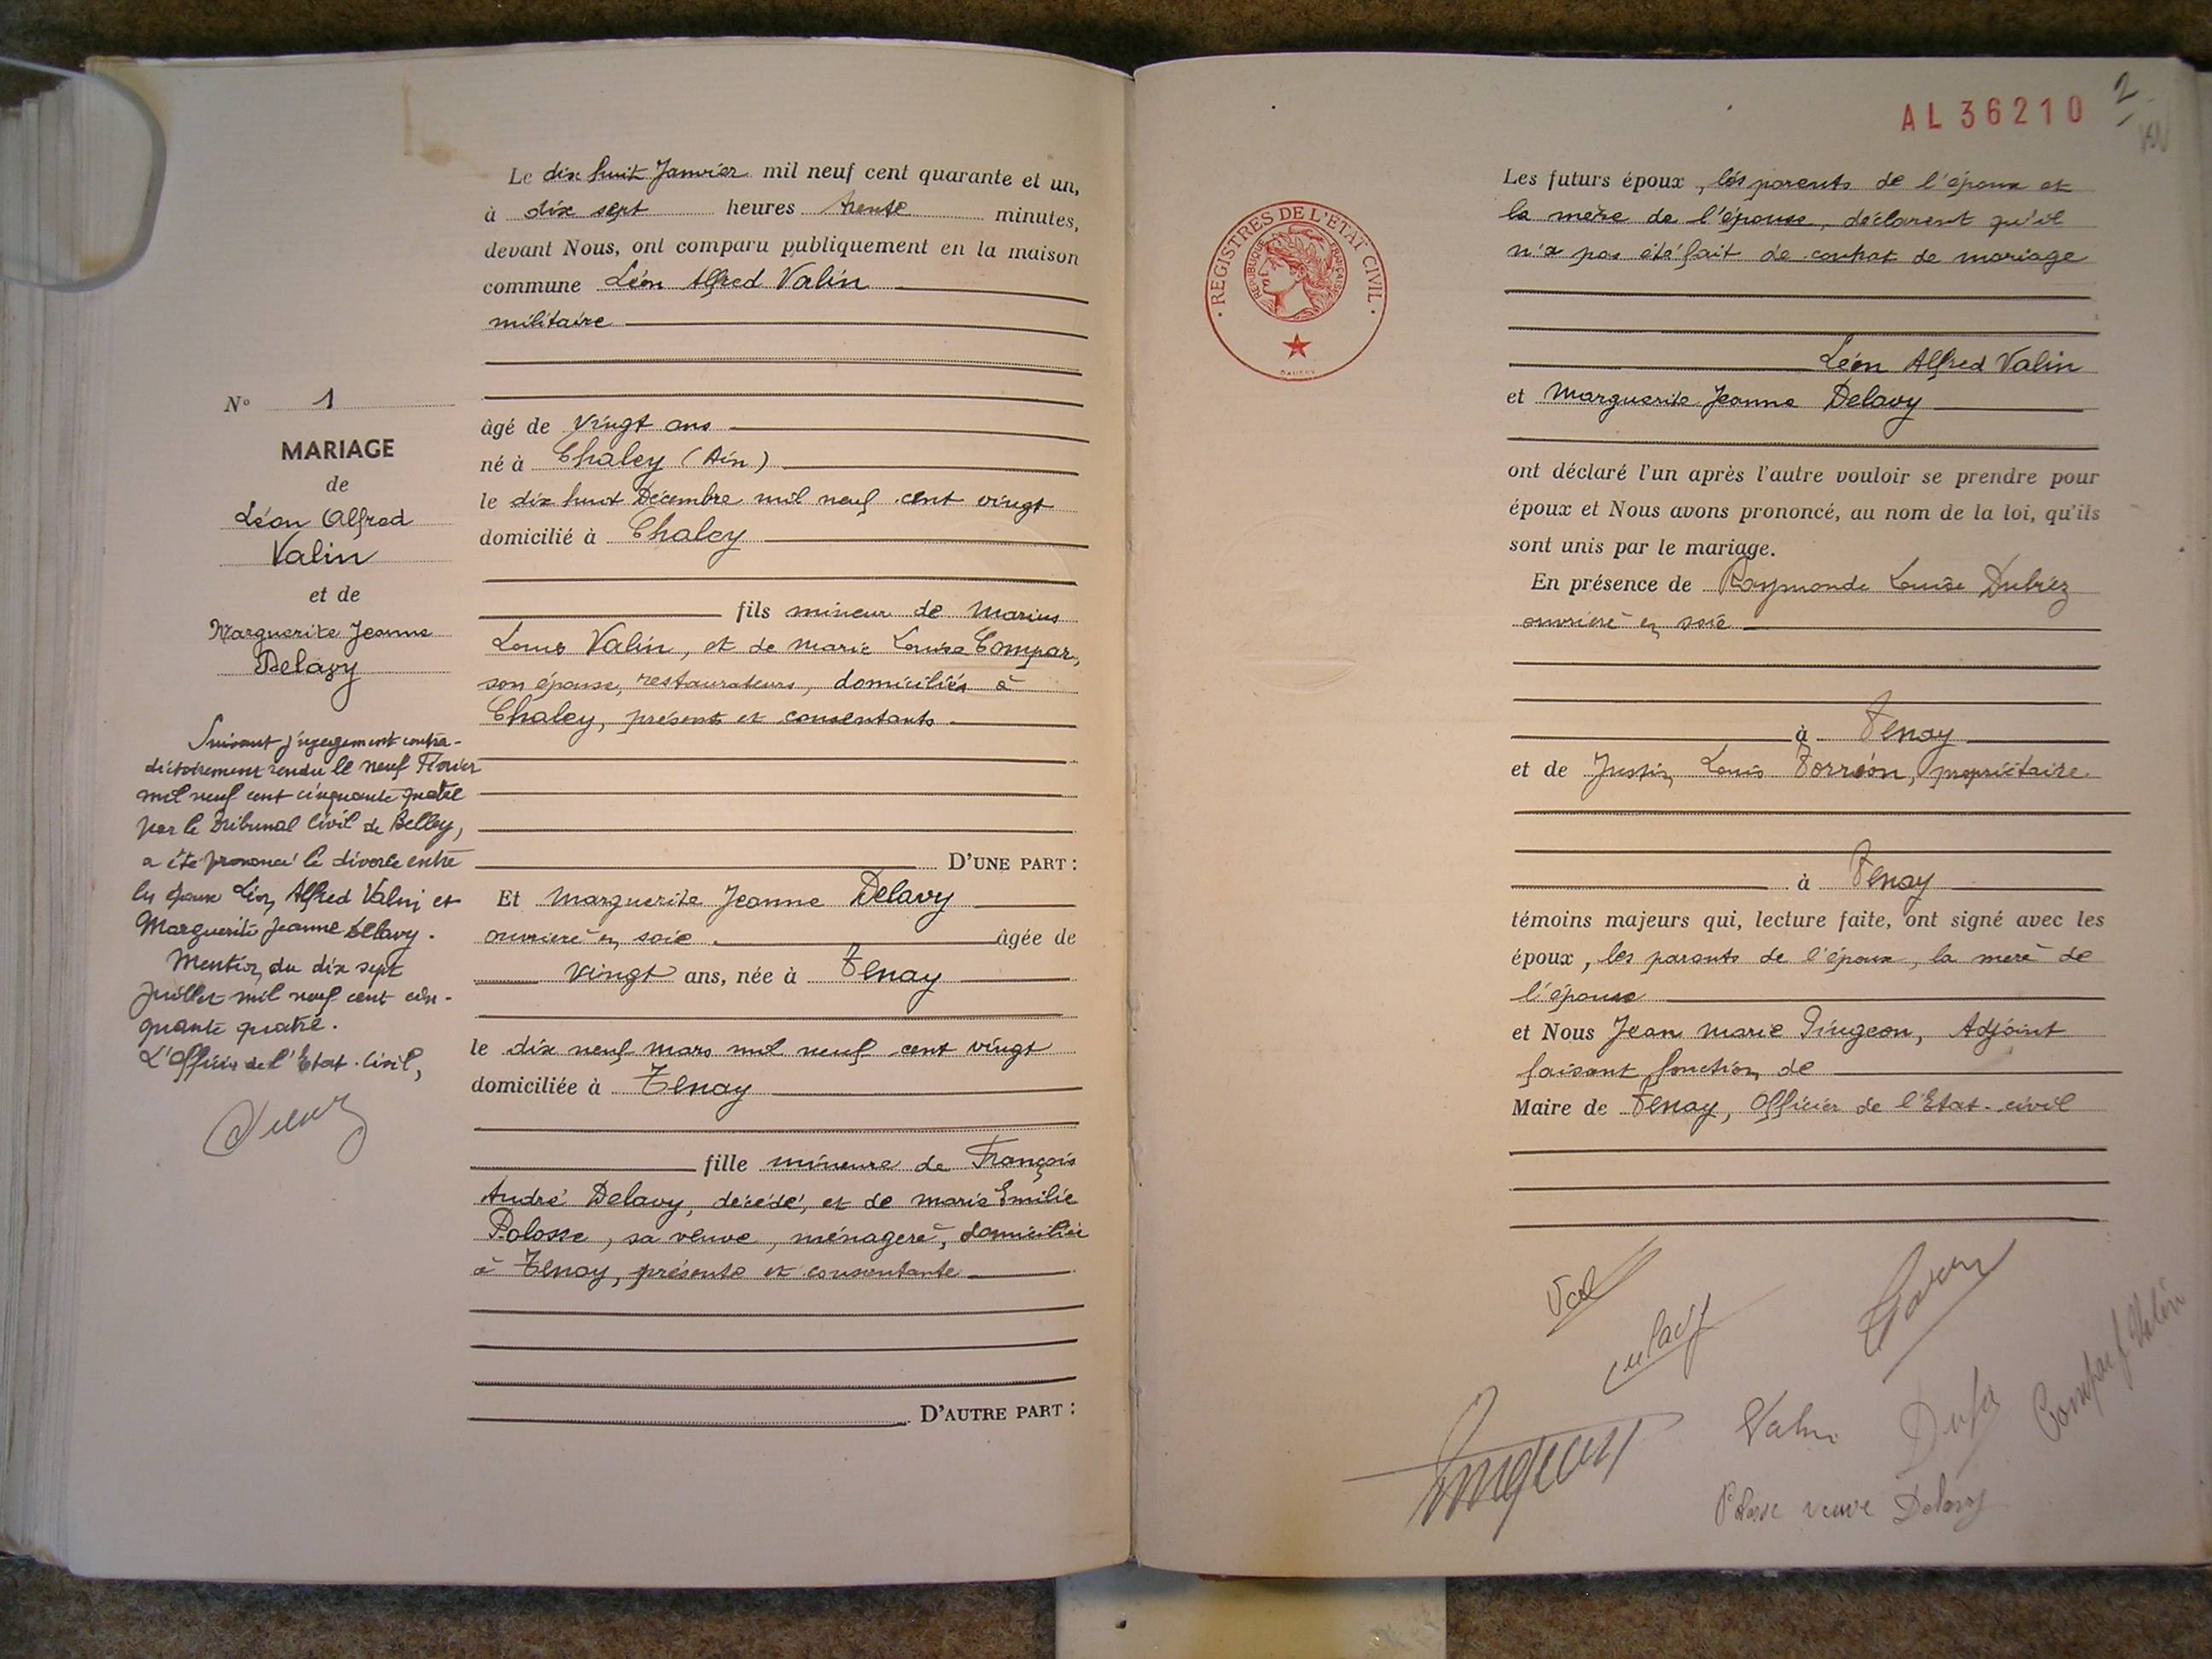 N° 1
MARIAGE
de
Léon Alfred
Valin
et de
Marguerite Jeanne
Delavy
Suivant jugement contra-
dictoirement rendu le neuf Février
mil neuf cent cinquante quatre
par le Tribunal Civil de Belley,
a été prononcé le divorce entre
les époux Léon Alfred Valin et
Marguerite Jeanne Delavy.
Mention du dix sept
Juillet mil neuf cent cin-
quante quatre.
L'Officier de l'Etat-Civil,
Le dix huit Janvier mil neuf cent quarante et un,
à dix sept heures trente minutes,
devant Nous, ont comparu publiquement en la maison
commune Léon Alfred Valin
militaire
âgé de vingt ans
né à Chaley (Ain)
le dix huit Décembre mil neuf cent vingt
domicilié à Chaley
fils mineur de Marius
Louis Valin, et de Marie Louise Compar,
son épouse, restaurateurs, domiciliés à
Chaley, présents et consentants
D'UNE PART :
Et Marguerite Jeanne Delavy
ouvrière en soie âgée de
vingt ans, née à Tenay
le dix neuf mars mil neuf cent vingt
domiciliée à Tenay
fille mineure de François
André Delavy, décédé, et de Marie Emilie
Polosse, sa veuve, ménagère, domiciliée
à Tenay, présente et consentante
D'AUTRE PART :
AL36210
2
REGISTRES DE L'ÉTAT CIVIL
RÉPUBLIQUE FRANÇAISE
Les futurs époux, les parents de l'époux et
la mère de l'épouse, déclarent qu'il
n'a pas été fait de contrat de mariage
Léon Alfred Valin
et Marguerite Jeanne Delavy
ont déclaré l'un après l'autre vouloir se prendre pour
époux et Nous avons prononcé, au nom de la loi, qu'ils
sont unis par le mariage.
En présence de Raymonde Louise Dubréz
ouvrière en soie
à Tenay
et de Justin Louis Torréon, propriétaire
à Tenay
témoins majeurs qui, lecture faite, ont signé avec les
époux, les parents de l'époux, la mère de
l'épouse
et Nous Jean Marie Pingeon, Adjoint
faisant fonction de
Maire de Tenay, Officier de l'Etat-civil
Valin
Compar f Valin
Pingeon
Polosse veuve Delavy